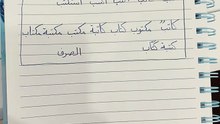 كاتب مكتوب كتاب كتابة مكتب مكتبة مكتاب
كتبة كتّاب الصرف